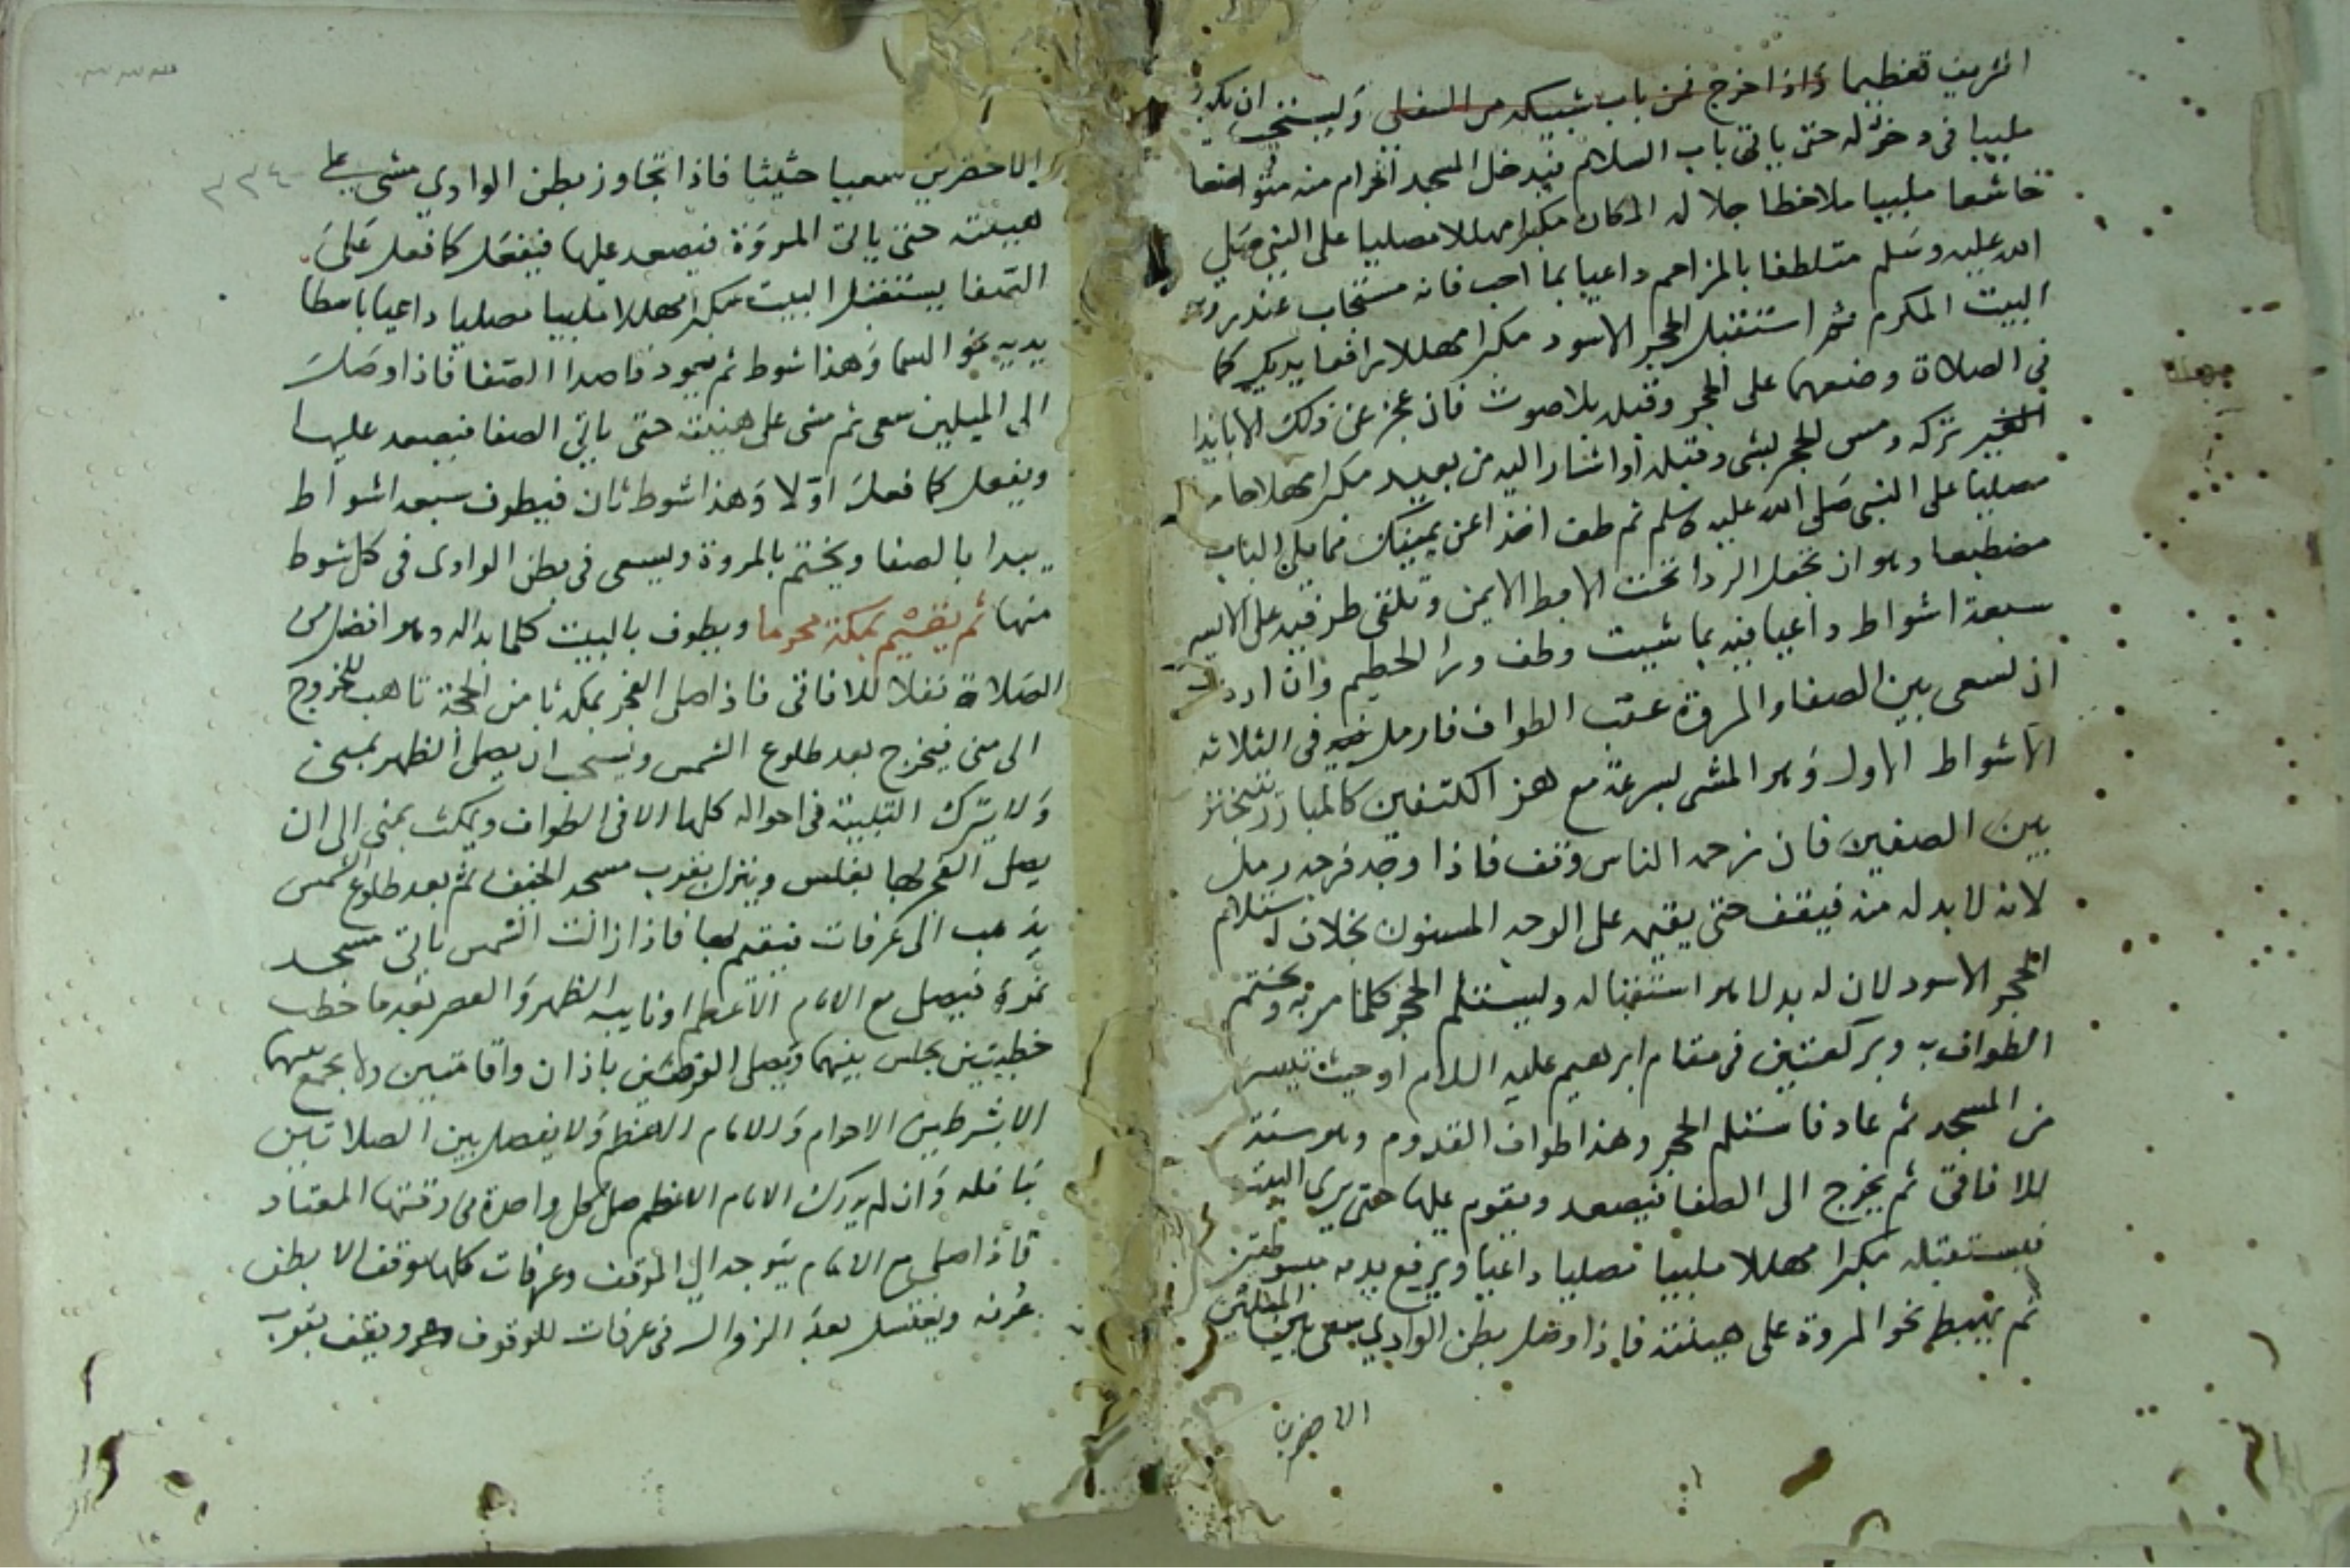 الشريف تعظيما واذا خرج فمن باب شبيكه من السفلي وليستحب ان يكون
ملبيا فى دخوله حتى ياتى باب السلام فيدخل المسجد الحرام منه متواضعا
خاشعا ملبيا ملاحظا جلاله المكان مكبرا مهللا مصليا على النبى صلي
الله عليه وسلم متلطفا بالمزاحم داعيا بما احب فانه مستجاب عند روية
البيت المكرم ثم استقبل الحجر الاسود مكبرا مهللا رافعا يديك كما
فى الصلاة وضعهما على الحجر وقبله بلا صوت فان عجز عن ذلك الا بايذا
الغير تركه ومس الحجر بشى وقبله او اشار اليه من بعيد مكبرا مهللا حامدا
مصليا على النبى صلى الله عليه وسلم ثم طف اخذا عن يمينك مما يلى الباب
مضطبعا وهو ان تجعل الردا تحت الابط الايمن وتلقى طرفيه على الايسر
سبعة اشواط داعيا فيه بما شيت وطف ورا الحطيم وان اردت
ان تسعى بين الصفا والمروة عقب الطواف فارمل فى الثلاثة
الاشواط الاول وهو المشى بسرعة مع هز الكتفين كالمبارز يتبختر
بين الصفين فان زحمه الناس وقف فاذا وجد فرجه رمل
لانه لا بد له منه فيقف حتى يقيمه على الوجه المسنون بخلاف استلام
الحجر الاسود لان له بدلا وهو استقباله وليستلم الحجر كلما مر به ويختم
الطواف به وبركعتين فى مقام ابرهيم عليه السلام او حيث تيسر
من المسجد ثم عاد فاستلم الحجر وهذا طواف القدوم وهو سنة
للافاقى ثم يخرج الى الصفا فيصعد ويقوم عليها حتى يرى البيت
فيستقبله مكبرا مهللا ملبيا مصليا داعيا ويرفع يديه مبسوطتين
ثم يهبط نحو المروة على هينته فاذا وصل بطن الوادي سعى بين الميلين
الاخضرين
٢٣٤
الاخضرين سعيا حثيثا فاذا تجاوز بطن الوادي مشى على
هينته حتى ياتى المروة فيصعد عليها فيفعل كما فعل على
الصفا يستقبل البيت مكبرا مهللا ملبيا مصليا داعيا باسطا
يديه نحو السما وهذا شوط ثم يعود قاصدا الصفا فاذا وصل
الى الميلين سعى ثم مشى على هينته حتى ياتي الصفا فيصعد عليها
ويفعل كما فعل اولا وهذا شوط ثان فيطوف سبعه اشواط
يبدا بالصفا ويختم بالمروة ويسعى فى بطن الوادى فى كل شوط
منها ثم يقيم بمكة محرما ويطوف بالبيت كلما بدا له وهو افضل من
الصلاة نفلا للافاقى فاذا صلى الفجر بمكه ثامن الحجة تاهب للخروج
الى منى فيخرج بعد طلوع الشمس ويستحب ان يصلى الظهر بمنى
ولا يترك التلبية فى احواله كلها الا فى الطواف ويمكث بمنى الى ان
يصلى الفجر بها بغلس وينزل بقرب مسجد الخيف ثم بعد طلوع الشمس
يذهب الى عرفات فيقيم بها فاذا زالت الشمس ياتى مسجد
نمرة فيصلى مع الامام الاعظم او نايبه الظهر والعصر بعد ما خطب
خطبتين يجلس بينهما ويصلى الفرضين باذان واقامتين ولا يجمع بينهما
الا بشرطين الاحرام والامام الاعظم ولا يفصل بين الصلاتين
بنافله وان لم يدرك الامام الاعظم صلى كل واحدة فى وقتها المعتاد
فاذا صلى مع الامام يتوجه الى الموقف وعرفات كلها موقف الا بطن
عرنه ويغتسل بعد الزوال فى عرفات للوقوف ويقف بقرب